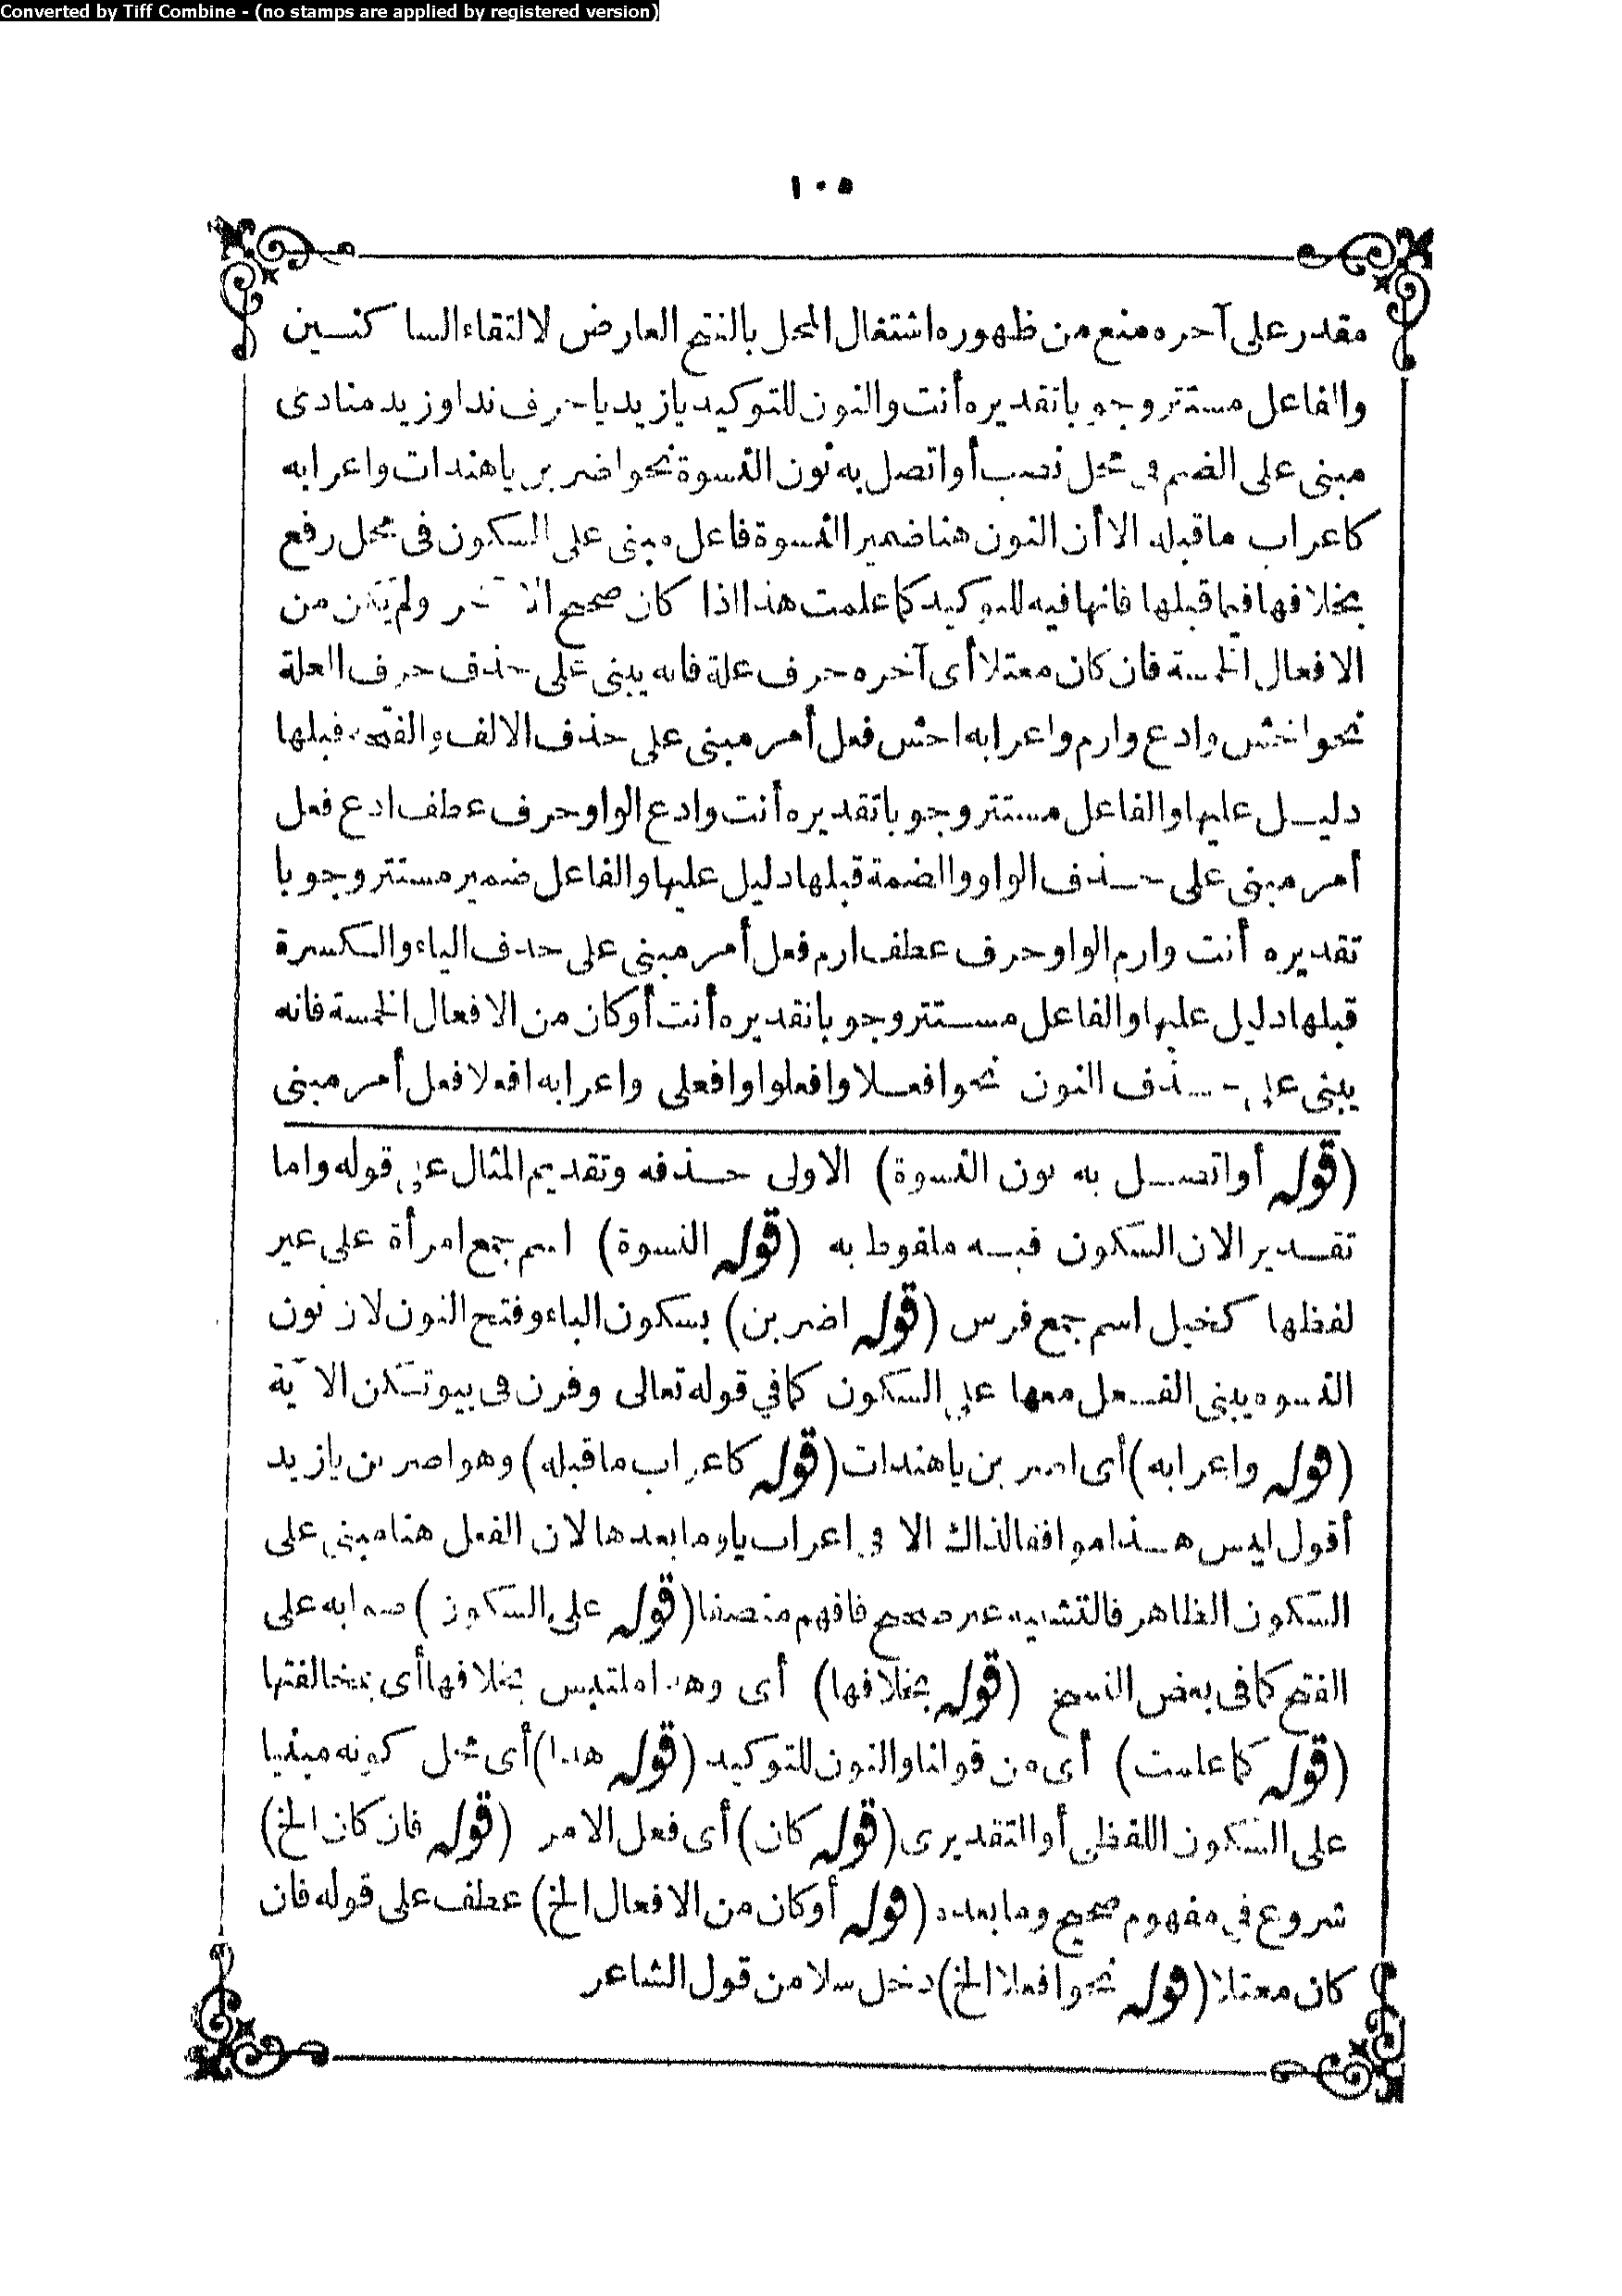 Converted by Tiff Combine - (no stamps are applied by registered version)
١٠٥
مقدر على آخره منع من ظهوره اشتغال المحل بالفتح العارض لالتقاء الساكنسين
والفاعل مستتر وجوبا تقديره أنت والنون للتوكيد يازيد يا حرف نداوزيد منادى
مبنى على الضم فى محل نصب أو اتصل به نون النسوة نحو اضربن ياهندات واعرابه
كاعراب ماقبله الا أن النون هنا ضمير النسوة فاعل مبنى على السكون فى محل رفع
بخلافها فيما قبلها فانها فيه للتوكيد كما علمت هذا اذا كان صحيح الآخر ولم يكن من
الافعال الخمسة فان كان معتلا أى آخره حرف علة فانه يبنى على حذف حرف العلة
نحو اخش وادع وارم واعرابه اخش فعل أمر مبنى على حذف الالف والفتحة قبلها
دليل عليها والفاعل مستتر وجوبا تقديره أنت وادع الواو حرف عطف ادع فعل
أمر مبنى على حذف الواو والضمة قبلها دليل عليها والفاعل ضمير مستتر وجوبا
تقديره أنت وارم الواو حرف عطف ارم فعل أمر مبنى على حذف الياء والكسرة
قبلها دليل عليها والفاعل مستتر وجوبا تقديره أنت أو كان من الافعال الخمسة فانه
يبنى على حذف النون نحو افعلا وافعلوا وافعلى واعرابه افعلا فعل أمر مبنى
(قوله أو اتصل به نون النسوة) الاولى حذفه وتقديم المثال على قوله واما
تقدير الان السكون فيه ملفوظ به (قوله النسوة) اسم جمع امرأة على غير
لفظها كخيل اسم جمع فرس (قوله اضربن) بسكون الباء وفتح النون لان نون
النسوه يبنى الفعل معها على السكون كما في قوله تعالى وقرن فى بيوتكن الآية
(قوله واعرابه) أى اضربن ياهندات (قوله كاعراب ماقبله) وهو اضربن يازيد
أقول ليس هذا موافقا لذاك الا فى اعراب يا وما بعدها لان الفعل هنا مبني على
السكون الظاهر فالتشبيه غير صحيح فافهم منصفا (قوله على السكون) صوابه على
الفتح كما فى بعض النسخ (قوله بخلافها) أى وهذا ملتبس بخلافها أى بمخالفتها
(قوله كما علمت) أى من قولنا والنون للتوكيد (قوله هذا) أى محل كونه مبنيا
على السكون اللفظى أو التقديرى (قوله كان) أى فعل الامر (قوله فان كان الخ)
شروع في مفهوم صحيح وما بعده (قوله أو كان من الافعال الخ) عطف على قوله فان
كان معتلا (قوله نحو افعلا الخ) دخل سلا من قول الشاعر